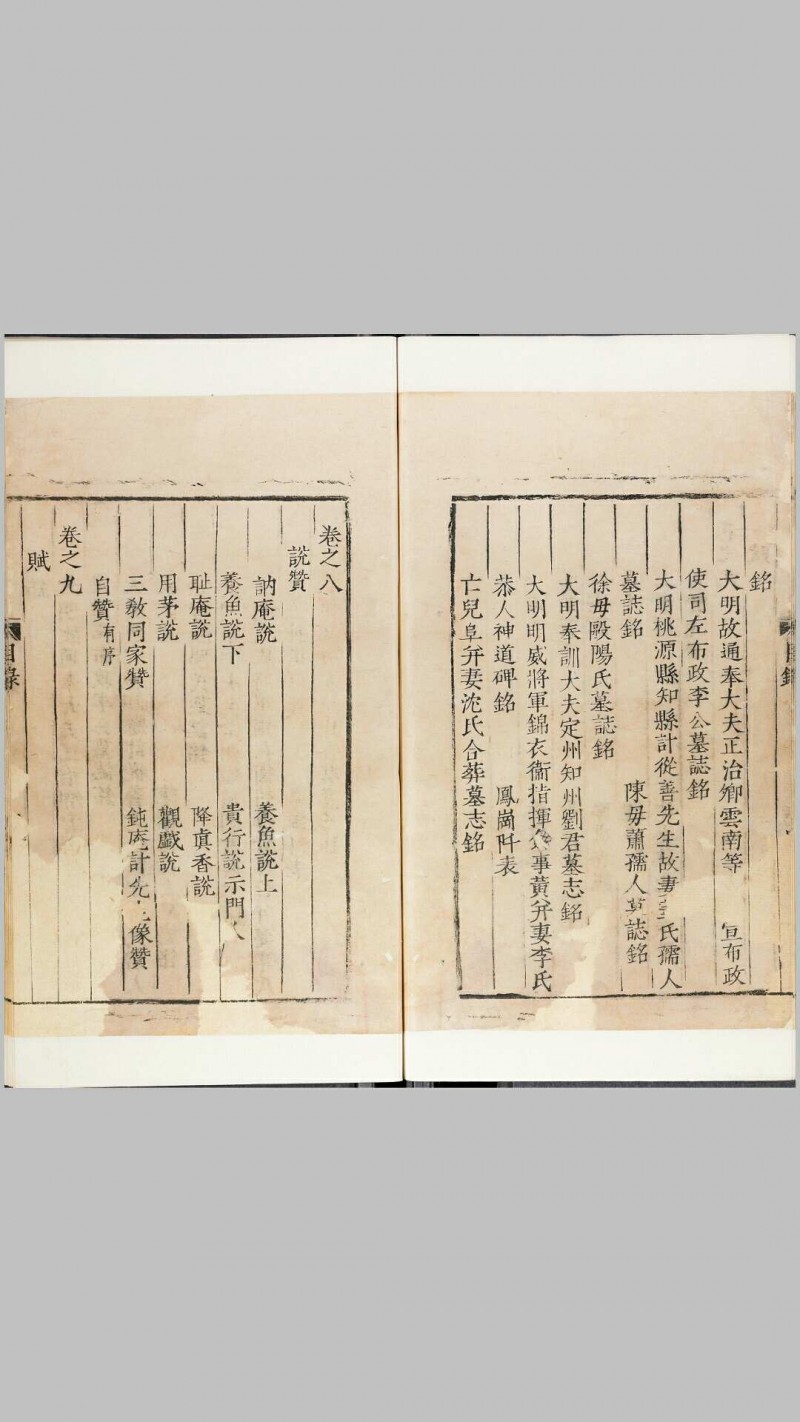 目錄
銘
大明故通奉大夫正治卿雲南等 宣布政
使司左布政李公墓誌銘
大明桃源縣知縣計從善先生故妻 氏孺人
墓誌銘 陳母蕭孺人 誌銘
徐母殿陽氏墓誌銘
大明奉訓大夫定州知州劉君墓志銘
大明明威將軍錦衣衞指揮 事黃 并妻李氏
恭人神道碑銘 鳳崗阡表
亡兒阜并妻沈氏合葬墓志銘
卷之八
說贊
訥庵說 養魚說上
養魚說下 貴行說示門人
耻庵說 降真香說
用茅說 觀戲說
三教同家贊 鈍庵計先 像贊
自贊有序
卷之九
賦
目錄